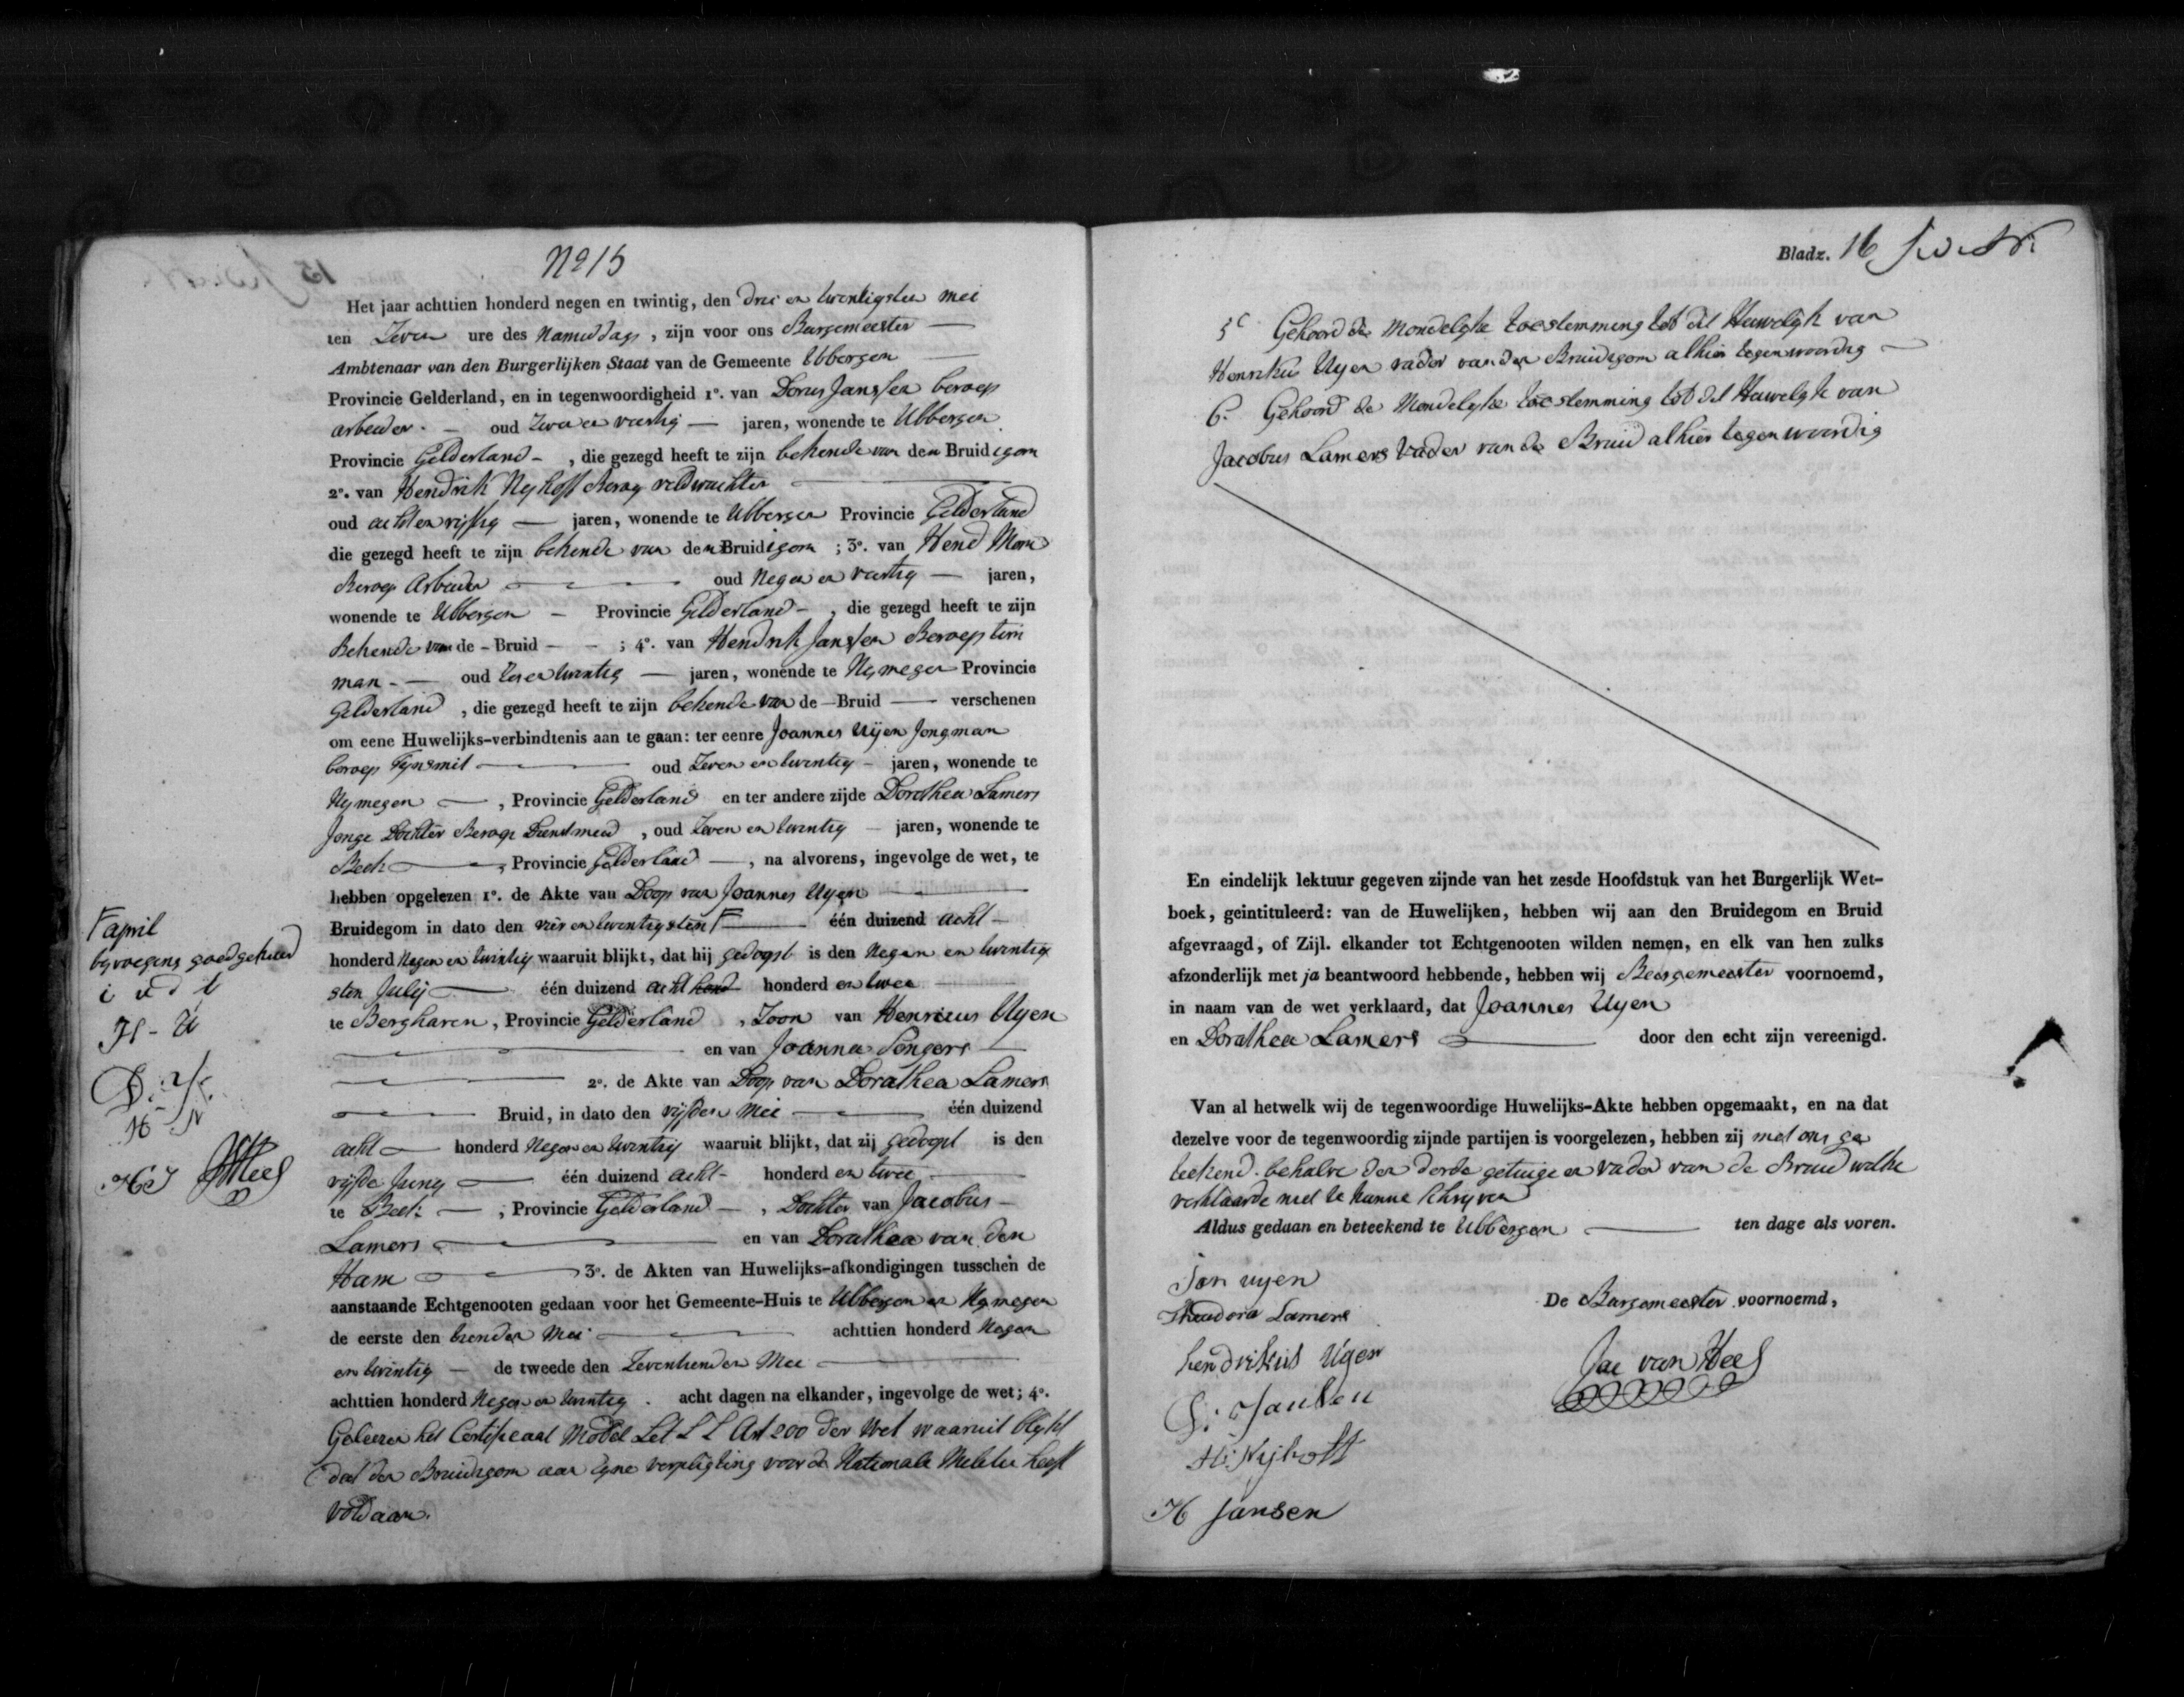 No 15
Het jaar achttien honderd negen en twintig, den drie en twintigsten mei
ten Zeven ure des Namiddags, zijn voor ons Burgemeester
Ambtenaar van den Burgerlijken Staat van de Gemeente Ubbergen
Provincie Gelderland, en in tegenwoordigheid 1º. van Dorus Janssen beroep
arbeider. oud twee en veertig jaren, wonende te Ubbergen
Provincie Gelderland, die gezegd heeft te zijn bekende van den Bruidegom
2º. van Hendrik Nyhoff Beroep veldwachter
oud acht en vijftig jaren, wonende te Ubbergen Provincie Gelderland
die gezegd heeft te zijn bekende van den Bruidigom ; 3º. van Hend
Beroep Arbeider oud Negen en veertig jaren,
wonende te Ubbergen Provincie Gelderland, die gezegd heeft te zijn
Bekende van de Bruid ; 4º. van Hendrik Janssen Beroep tim
man oud en twintig jaren, wonende te Nymegen Provincie
Gelderland, die gezegd heeft te zijn bekende van de Bruid verschenen
om eene Huwelijks-verbindtenis aan te gaan: ter eenre Joannes Uijen Jongman
beroep Fynsmit oud Zeven en twintig jaren, wonende te
Nymegen, Provincie Gelderland en ter andere zijde Dorothea Lamers
Jonge Dochter Beroep Dienstmeid, oud Zeven en twintig jaren, wonende te
Beek, Provincie Gelderland, na alvorens, ingevolge de wet, te
hebben opgelezen 1º. de Akte van Doop van Joannes Uyen
Bruidegom in dato den vier en twintigsten F één duizend acht
honderd Negen en twintig waaruit blijkt, dat hij gedoopt is den Negen en twintig
sten Julij één duizend acht hond honderd en twee
te Bergharen, Provincie Gelderland, Zoon van Henricus Uyen
en van Joanna Sengers
2º. de Akte van Doop van Dorathea Lamers
Bruid, in dato den vijfden Mei één duizend
acht honderd Negen en twintig waaruit blijkt, dat zij gedoopt is den
vijfde Juny één duizend acht honderd en twee
te Beek, Provincie Gelderland, Dochter van Jacobus
Lamers en van Dorathea van den
Ham 3º. de Akten van Huwelijks-afkondigingen tusschen de
aanstaande Echtgenooten gedaan voor het Gemeente-Huis te Ubbergen en Nymegen
de eerste den tienden Mei achttien honderd Negen
en twintig de tweede den Zeventienden Mei
achttien honderd Negen en twintig. acht dagen na elkander, ingevolge de wet; 4º.
Gelezen het Certificaat Model Let L L Art 200 der Wet waaruit blykt
dat den Bruidegom aan zyne verpligting voor de Nationale Militie heeft
voldaan.
F april
byvoeging goedgekeurd
J H
H J
Bladz. 16
5e Gehoord de Mondelyke toestemming tot dit Huwelyk van
Henrikus Uyen vader van den Bruidegom alhier tegenwoordig
6. Gehoord de Mondelyke toestemming tot dit Huwelyk van
Jacobus Lamers Vader van de Bruid alhier tegenwoordig
En eindelijk lektuur gegeven zijnde van het zesde Hoofdstuk van het Burgerlijk Wet-
boek, geintituleerd: van de Huwelijken, hebben wij aan den Bruidegom en Bruid
afgevraagd, of Zijl. elkander tot Echtgenooten wilden nemen, en elk van hen zulks
afzonderlijk met ja beantwoord hebbende, hebben wij Burgemeester voornoemd,
in naam van de wet verklaard, dat Joannes Uyen
en Dorathea Lamers door den echt zijn vereenigd.
Van al hetwelk wij de tegenwoordige Huwelijks-Akte hebben opgemaakt, en na dat
dezelve voor de tegenwoordig zijnde partijen is voorgelezen, hebben zij met ons ge
teekend. behalve den derde getuige en vader van de Bruid welke
verklaarde niet te kunne schryven
Aldus gedaan en beteekend te Ubbergen ten dage als voren.
Jan uyen
Theadora Lamers
hendrikus Uyen
D: Jansen
H: Nyhoff
H Jansen
De Burgemeester voornoemd,
Jac van Hees